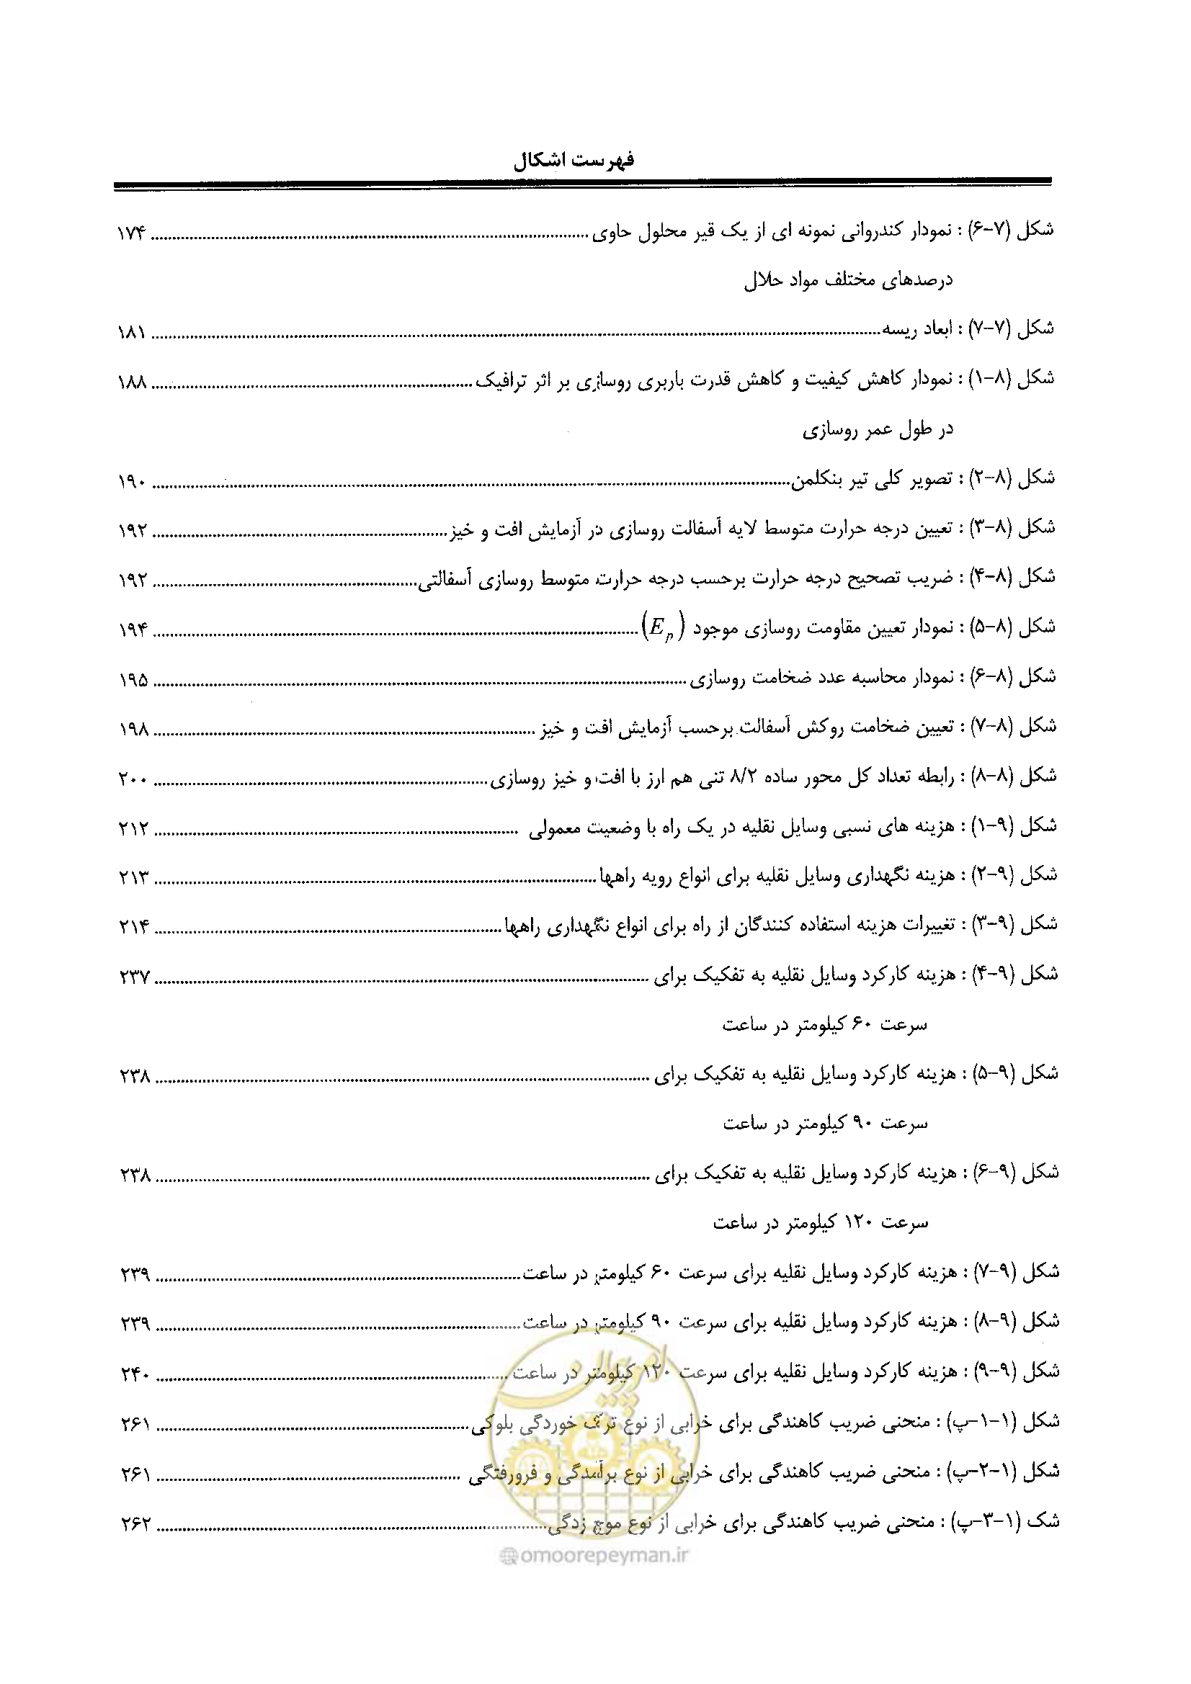 فهرست اشکال
شکل (۷-۶) : نمودار کندروانی نمونه ای از یک قیر محلول حاوی ........ ۱۷۴
درصدهای مختلف مواد حلال
شکل (۷-۷) : ابعاد ریسه ........ ۱۸۱
شکل (۸-۱) : نمودار کاهش کیفیت و کاهش قدرت باربری روسازی بر اثر ترافیک ........ ۱۸۸
در طول عمر روسازی
شکل (۸-۲) : تصویر کلی تیر بنکلمن ........ ۱۹۰
شکل (۸-۳) : تعیین درجه حرارت متوسط لایه آسفالت روسازی در آزمایش افت و خیز ........ ۱۹۲
شکل (۸-۴) : ضریب تصحیح درجه حرارت برحسب درجه حرارت متوسط روسازی آسفالتی ........ ۱۹۲
شکل (۸-۵) : نمودار تعیین مقاومت روسازی موجود (E_p) ........ ۱۹۴
شکل (۸-۶) : نمودار محاسبه عدد ضخامت روسازی ........ ۱۹۵
شکل (۸-۷) : تعیین ضخامت روکش آسفالت برحسب آزمایش افت و خیز ........ ۱۹۸
شکل (۸-۸) : رابطه تعداد کل محور ساده ۸/۲ تنی هم ارز با افت و خیز روسازی ........ ۲۰۰
شکل (۹-۱) : هزینه های نسبی وسایل نقلیه در یک راه با وضعیت معمولی ........ ۲۱۲
شکل (۹-۲) : هزینه نگهداری وسایل نقلیه برای انواع رویه راهها ........ ۲۱۳
شکل (۹-۳) : تغییرات هزینه استفاده کنندگان از راه برای انواع نگهداری راهها ........ ۲۱۴
شکل (۹-۴) : هزینه کارکرد وسایل نقلیه به تفکیک برای ........ ۲۳۷
سرعت ۶۰ کیلومتر در ساعت
شکل (۹-۵) : هزینه کارکرد وسایل نقلیه به تفکیک برای ........ ۲۳۸
سرعت ۹۰ کیلومتر در ساعت
شکل (۹-۶) : هزینه کارکرد وسایل نقلیه به تفکیک برای ........ ۲۳۸
سرعت ۱۲۰ کیلومتر در ساعت
شکل (۹-۷) : هزینه کارکرد وسایل نقلیه برای سرعت ۶۰ کیلومتر در ساعت ........ ۲۳۹
شکل (۹-۸) : هزینه کارکرد وسایل نقلیه برای سرعت ۹۰ کیلومتر در ساعت ........ ۲۳۹
شکل (۹-۹) : هزینه کارکرد وسایل نقلیه برای سرعت ۱۲۰ کیلومتر در ساعت ........ ۲۴۰
شکل (۱-۱-پ) : منحنی ضریب کاهندگی برای خرابی از نوع ترک خوردگی بلوکی ........ ۲۶۱
شکل (۱-۲-پ) : منحنی ضریب کاهندگی برای خرابی از نوع برآمدگی و فرورفتگی ........ ۲۶۱
شک (۱-۳-پ) : منحنی ضریب کاهندگی برای خرابی از نوع موج زدگی ........ ۲۶۲
@omoorepeyman.ir